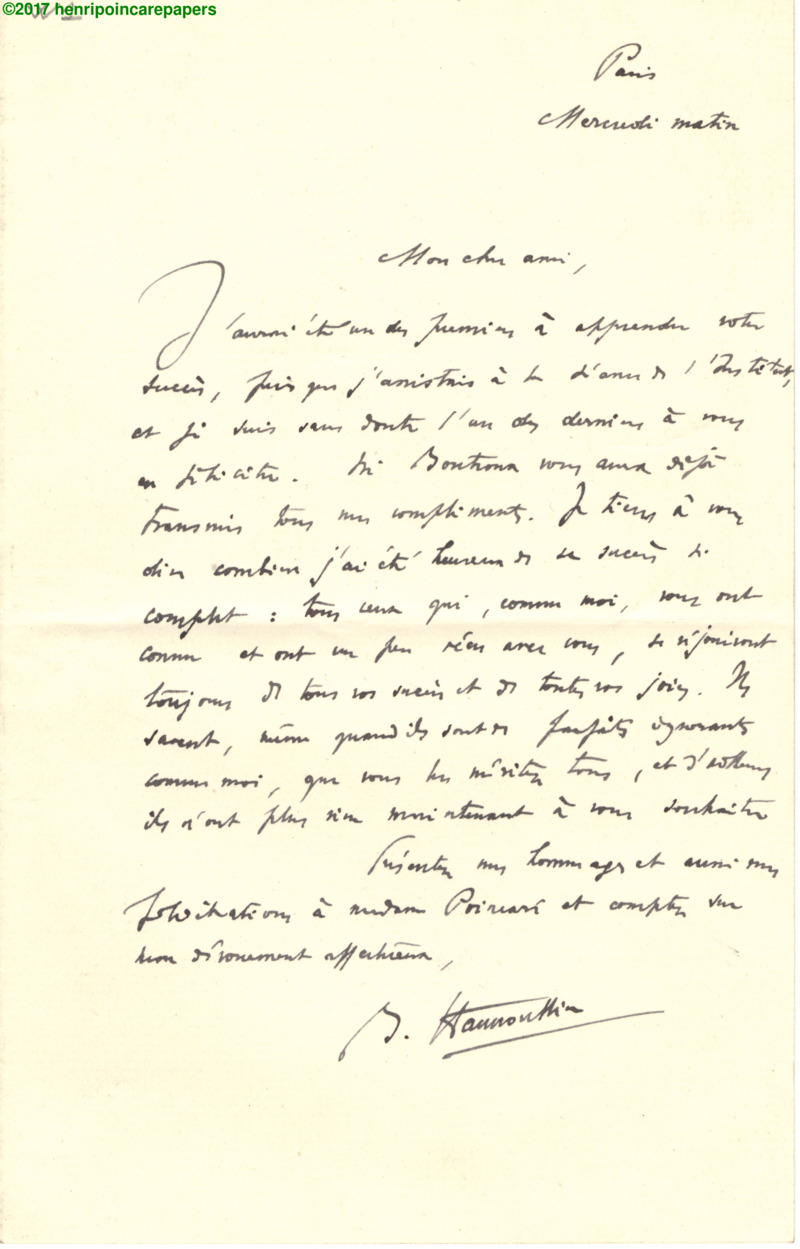 ©2017 henripoincarepapers
Paris
Mercredi matin
Mon cher ami,
J'aurai été un des premiers à apprendre votre
succès, puisque j'assistais à la séance de l'Institut,
et je suis sans doute l'un des derniers à vous
en féliciter. Si Boutroux vous aura déjà
transmis tous mes compliments. Je tiens à vous
dire combien j'ai été heureux de ce succès si
complet : tous ceux qui, comme moi, vous ont
connu et ont un peu vécu avec vous, se réjouiront
toujours de tous vos succès et de toutes vos joies. Ils
savent, même quand ils sont de parfaits ignorants
comme moi, que vous les méritez tous, et d'ailleurs
ils n'ont plus rien maintenant à vous souhaiter
Présentez mes hommages et aussi mes
félicitations à madame Poincaré et comptez sur
mon dévouement affectueux,